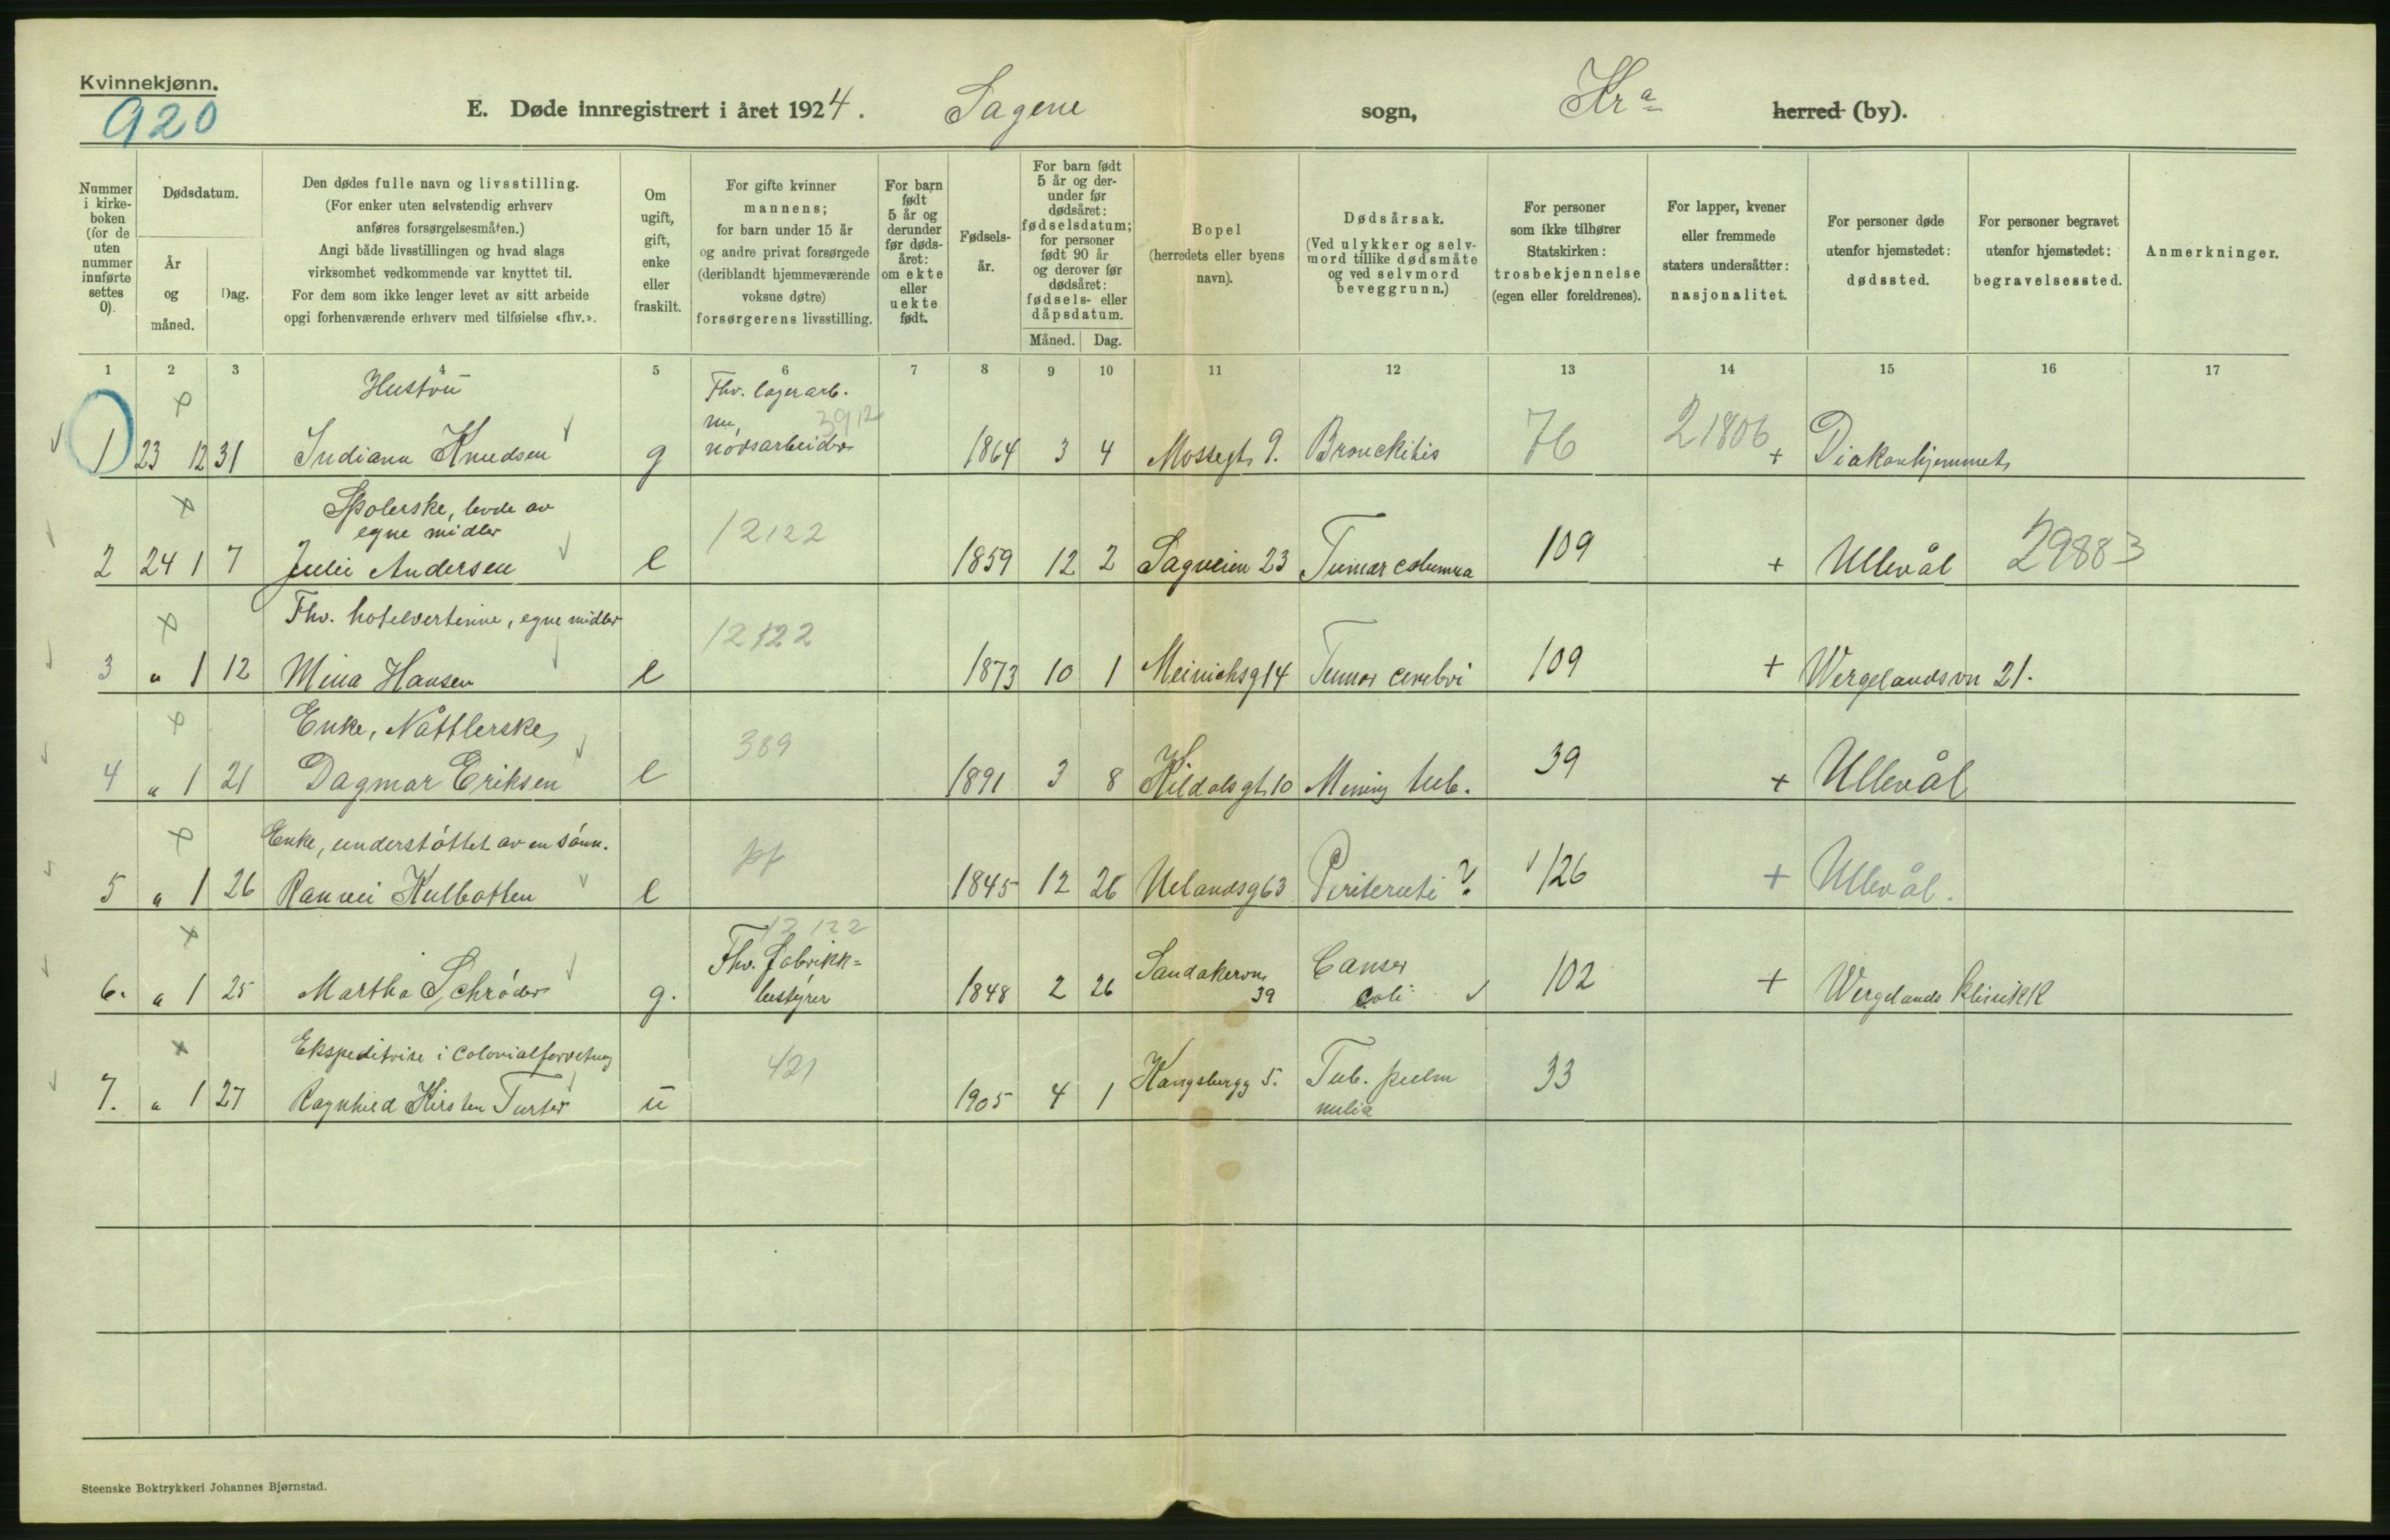 Kvinnekjønn.
920
E. Døde innregistrert i året 1924. Sagene sogn, Kra herred (by).
Nummer i kirkeboken (for de uten nummer innførte settes 0).
Dødsdatum.
År og måned.
Dag.
Den dødes fulle navn og livsstilling.
(For enker uten selvstendig erhverv
anføres forsørgelsesmåten.)
Angi både livsstillingen og hvad slags
virksomhet vedkommende var knyttet til.
For dem som ikke lenger levet av sitt arbeide
opgi forhenværende erhverv med tilføielse «fhv.».
Om ugift, gift, enke eller fraskilt.
For gifte kvinner
mannens;
for barn under 15 år
og andre privat forsørgede
(deriblandt hjemmeværende
voksne døtre)
forsørgerens livsstilling.
For barn født 5 år og derunder før dødsåret: om ekte eller uekte født.
Fødselsår.
For barn født
5 år og der-
under før
dødsåret:
fødselsdatum;
for personer
født 90 år
og derover før
dødsåret:
fødsels- eller
dåpsdatum.
Måned. Dag.
Bopel
(herredets eller byens
navn).
Dødsårsak.
(Ved ulykker og selv-
mord tillike dødsmåte
og ved selvmord
beveggrunn.)
For personer
som ikke tilhører
Statskirken:
trosbekjennelse
(egen eller foreldrenes).
For lapper, kvener
eller fremmede
staters undersåtter:
nasjonalitet.
For personer døde
utenfor hjemstedet:
dødssted.
For personer begravet
utenfor hjemstedet:
begravelsessted.
Anmerkninger.
1 2 3 4 5 6 7 8 9 10 11 12 13 14 15 16 17
Hustru Fhv. lagerarb.
nu 3912
1 23 12 31 Indiana Knudsen g nødsarbeider 1864 3 4 Mossegt 9. Bronckitis 76 21806 + Diakonhjemmet
Spolerske, levde av
egne midler
2 24 1 7 Julie Andersen e 12122 1859 12 2 Sagveien 23 Tumor columna 109 + Ullevål 29883
Fhv. hotelvertinne, egne midler
3 " 1 12 Mina Hansen e 12122 1873 10 1 Meinichsg 14 Tumor cerebri 109 + Wergelandsvn 21.
Enke, Nåttlerske
4 " 1 21 Dagmar Eriksen e 389 1891 3 8 Hildalsgt 10 Mening tub. 39 + Ullevål
Enke, understøttet av en sønn.
5 " 1 26 Ranvei Kulbotten e pf 1845 12 26 Uelandsg 63 ? 126 + Ullevål.
12122
Fhv. fabrikk=
6. " 1 25 Martha Schrøder g. bestyrer 1848 2 26 Sandakervn 39 Canser coli 102 + Wergelands klinikk
Ekspeditrise i colonialforretng
7. " 1 27 Ragnhild Kirsten Turter u 421 1905 4 1 Kongsbergg 5. Tub. pulm 33
milia
Steenske Boktrykkeri Johannes Bjørnstad.